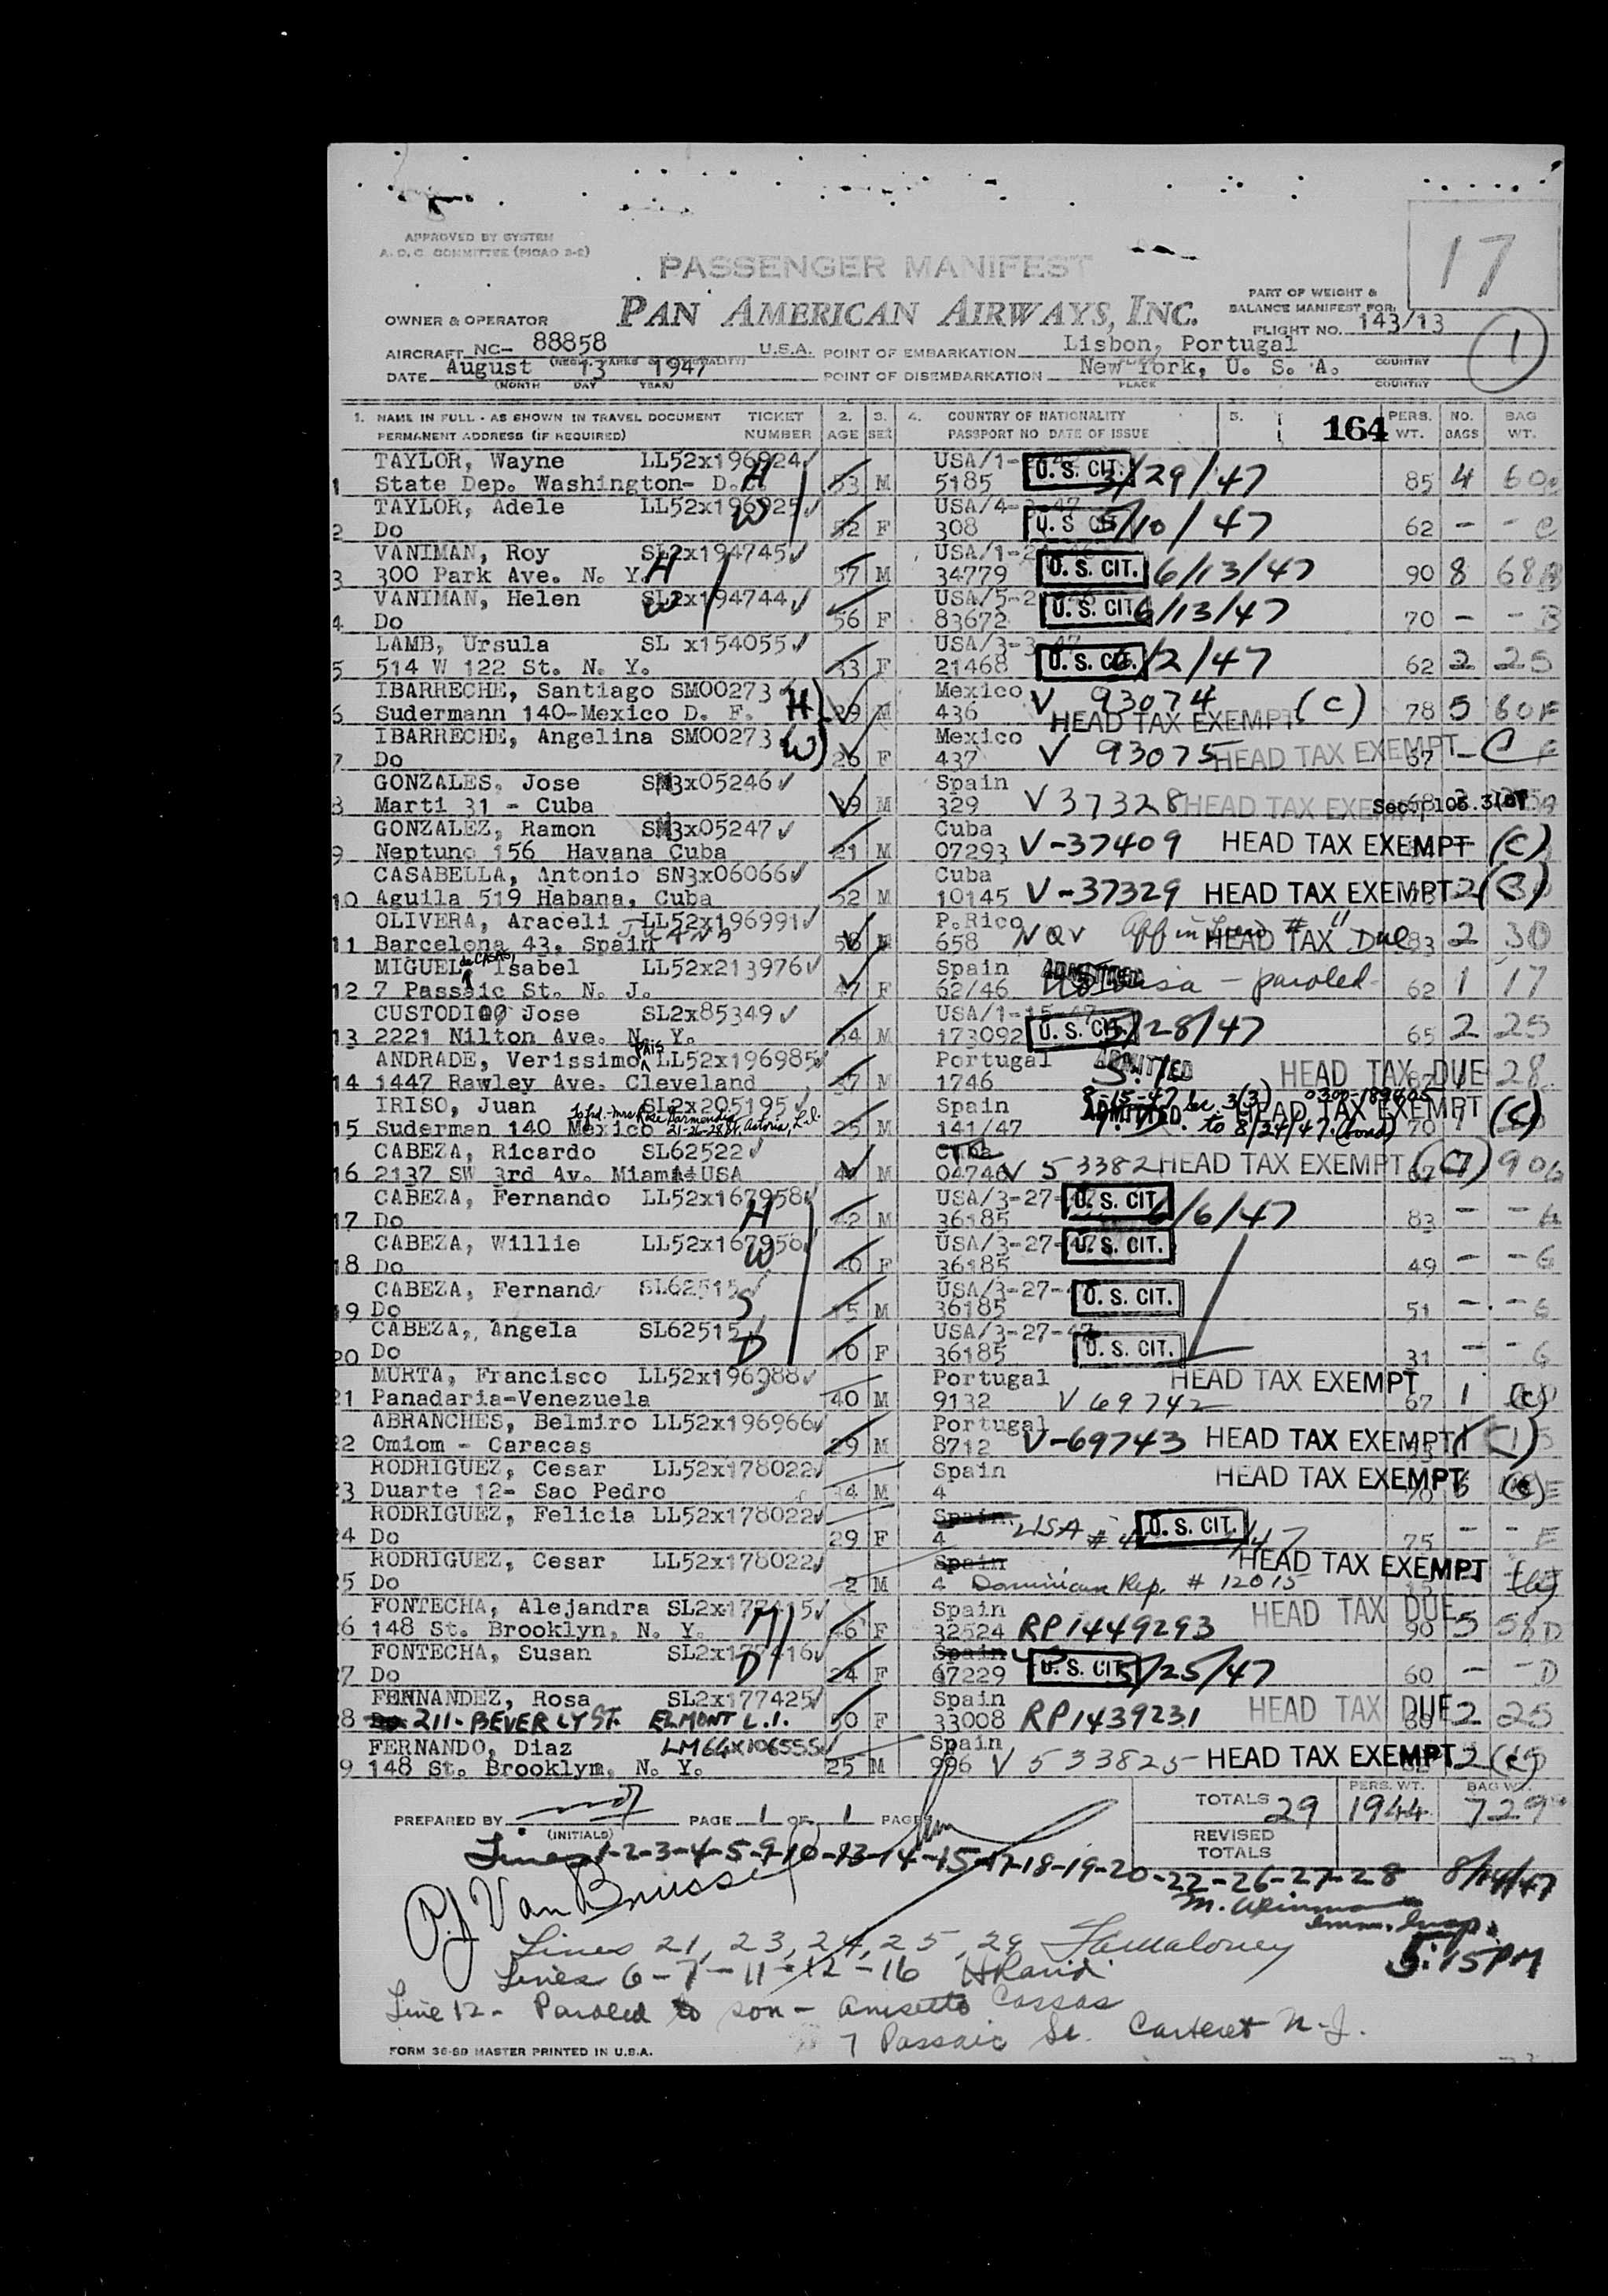 17
APPROVED BY SYSTEM
A. O. C. COMMITTEE (PICAO 3-2)
PASSENGER MANIFEST
PAN AMERICAN AIRWAYS, INC.
PART OF WEIGHT &
BALANCE MANIFEST FOR:
OWNER & OPERATOR
FLIGHT NO. 143/13
AIRCRAFT NC- 88858 U.S.A. POINT OF EMBARKATION Lisbon, Portugal COUNTRY
1
DATE August 13 1947 POINT OF DISEMBARKATION New York, U. S. A.
(MONTH DAY YEAR) PLACE COUNTRY
1. NAME IN FULL - AS SHOWN IN TRAVEL DOCUMENT TICKET 2. 3. 4. COUNTRY OF NATIONALITY 5. 164 PERS. NO. BAG
PERMANENT ADDRESS (IF REQUIRED) NUMBER AGE SEX PASSPORT NO DATE OF ISSUE WT. BAGS WT.
TAYLOR, Wayne LL52x196924 USA/1- U. S. CIT.
1 State Dep. Washington- D.C. H 53 M 5185 3/29/47 85 4 60
TAYLOR, Adele LL52x196925 USA/4-3-47
2 Do W 52 F 308 U. S. CIT. 5/10/47 62 - - C
VANIMAN, Roy SL2x194745 USA/1-2
3 300 Park Ave. N. Y. H 57 M 34779 U. S. CIT. 6/13/47 90 8 68 B
VANIMAN, Helen SL2x194744 USA/5-2
4 Do W 56 F 83672 U. S. CIT. 6/13/47 70 - - B
LAMB, Ursula SL x154055 USA/3-3-47
5 514 W 122 St. N. Y. 33 F 21468 U. S. CIT. 6/2/47 62 2 25
IBARRECHE, Santiago SM00273 Mexico V 93074
6 Sudermann 140-Mexico D. F. H 29 M 436 HEAD TAX EXEMPT (C) 78 5 60 F
IBARRECHE, Angelina SM00273 Mexico
7 Do W 26 F 437 V 93075 HEAD TAX EXEMPT 67 - C F
GONZALES, Jose SN3x05246 Spain
8 Marti 31 - Cuba 39 M 329 V 37328 HEAD TAX EXEMPT
GONZALEZ, Ramon SN3x05247 Cuba
9 Neptuno 156 Havana Cuba 21 M 07293 V-37409 HEAD TAX EXEMPT (C)
CASABELLA, Antonio SN3x06066 Cuba
10 Aguila 519 Habana, Cuba 52 M 10145 V-37329 HEAD TAX EXEMPT 2 (C)
OLIVERA, Araceli LL52x196991 P.Rico
11 Barcelona 43, Spain 58 658 NQV HEAD TAX Due 83 2 30
MIGUEL de CASAS, Isabel LL52x213976 Spain ADMITTED
12 7 Passaic St. N. J. 47 F 62/46 No visa - paroled 62 1 17
CUSTODIO Jose SL2x85349 USA/1-15-47
13 2221 Nilton Ave. N. Y. 54 M 173092 U. S. CIT. 5/28/47 65 2 25
ANDRADE, Verissimo PAIS LL52x196985 Portugal ADMITTED
14 1447 Rawley Ave. Cleveland 37 M 1746 HEAD TAX DUE 28
IRISO, Juan SL2x205195 Spain 8-15-47 Sec. 3(3)
15 Suderman 140 Mexico 25 M 141/47 ADMITTED. to 8/24/47. (bond) HEAD TAX EXEMPT 70 1 (C)
CABEZA, Ricardo SL62522 Cuba
16 2137 SW 3rd Av. Miami-USA M 04746 V 53382 HEAD TAX EXEMPT (C) 90 G
CABEZA, Fernando LL52x167958 USA/3-27- U. S. CIT.
17 Do H 42 M 36185 6/6/47 83 - - G
CABEZA, Willie LL52x167956 USA/3-27-47 U. S. CIT.
18 Do W 40 F 36185 49 - - G
CABEZA, Fernand SL62515 USA/3-27- U. S. CIT.
19 Do S 15 M 36185 51 - - G
CABEZA, Angela SL62515 USA/3-27-47
20 Do D 10 F 36185 U. S. CIT. 31 - - G
MURTA, Francisco LL52x196988 Portugal HEAD TAX EXEMPT
21 Panadaria-Venezuela 40 M 9132 V 69742 67 1 (C)
ABRANCHES, Belmiro LL52x196966 Portugal
22 Omiom - Caracas 29 M 8712 V-69743 HEAD TAX EXEMPT
RODRIGUEZ, Cesar LL52x178022 Spain HEAD TAX EXEMPT
23 Duarte 12- Sao Pedro 34 M 4 70 (C) E
RODRIGUEZ, Felicia LL52x178022 Spain USA U. S. CIT.
24 Do 29 F 4 75 - - E
RODRIGUEZ, Cesar LL52x178022 Spain HEAD TAX EXEMPT
25 Do 2 M 4 Dominican Rep. # 12015
FONTECHA, Alejandra SL2x177415 Spain HEAD TAX DUE
26 148 St. Brooklyn, N. Y. M F 32524 RP1449293 90 5 58 D
FONTECHA, Susan SL2x177416 Spain
27 Do D 24 F 67229 U. S. CIT. 5/25/47 60 - - D
FERNANDEZ, Rosa SL2x177425 Spain HEAD TAX DUE
28 Do 211-BEVERLY ST. ELMONT L.I. 50 F 33008 RP1439231 2 25
FERNANDO, Diaz LM64X106555 Spain
29 148 St. Brooklym, N. Y. 25 M 996 V 533825 HEAD TAX EXEMPT 2 (C)
PREPARED BY PAGE 1 OF 1 PAGES
(INITIALS)
TOTALS 29 PERS. WT. 1944 BAG WT. 729
REVISED TOTALS
Lines 1-2-3-4-5-9-10-13-14-15-17-18-19-20-22-26-27-28 8/14/47
P.J Van Brussel
Imm. Insp.
Lines 21, 23, 24, 25, 29 5:15PM
Lines 6-7-11-12-16
Line 12- Paroled to son - Anisetto Cassas
7 Passaic St. Carteret N-J.
FORM 36-80 MASTER PRINTED IN U.S.A.